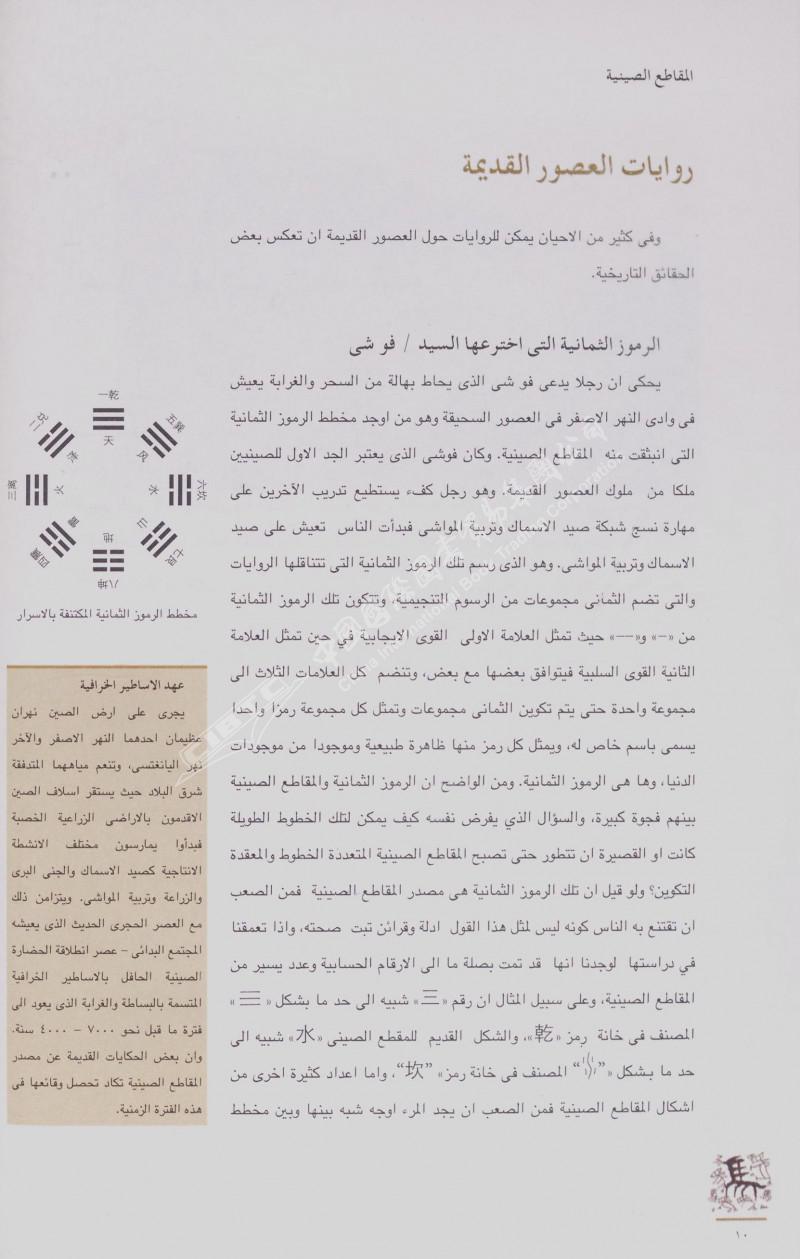 المقاطع الصينية
روايات العصور القديمة
وفى كثير من الاحيان يمكن للروايات حول العصور القديمة ان تعكس بعض
الحقائق التاريخية.
الرموز الثمانية التى اخترعها السيد / فو شى
يحكى ان رجلا يدعى فو شى الذى يحاط بهالة من السحر والغرابة يعيش
فى وادى النهر الاصفر فى العصور السحيقة وهو من اوجد مخطط الرموز الثمانية
التى انبثقت منه المقاطع الصينية. وكان فوشى الذى يعتبر الجد الاول للصينيين
ملكا من ملوك العصور القديمة. وهو رجل كفء يستطيع تدريب الآخرين على
مهارة نسج شبكة صيد الاسماك وتربية المواشى فبدأت الناس تعيش على صيد
الاسماك وتربية المواشى. وهو الذى رسم تلك الرموز الثمانية التى تتناقلها الروايات
والتى تضم الثمانى مجموعات من الرسوم التنجيمية، وتتكون تلك الرموز الثمانية
من «–» و«––» حيث تمثل العلامة الاولى القوى الايجابية في حين تمثل العلامة
الثانية القوى السلبية فيتوافق بعضها مع بعض، وتنضم كل العلامات الثلاث الى
مجموعة واحدة حتى يتم تكوين الثمانى مجموعات وتمثل كل مجموعة رمزا واحدا
يسمى باسم خاص له، ويمثل كل رمز منها ظاهرة طبيعية وموجودا من موجودات
الدنيا، وها هى الرموز الثمانية. ومن الواضح ان الرموز الثمانية والمقاطع الصينية
بينهم فجوة كبيرة، والسؤال الذي يفرض نفسه كيف يمكن لتلك الخطوط الطويلة
كانت او القصيرة ان تتطور حتى تصبح المقاطع الصينية المتعددة الخطوط والمعقدة
التكوين؟ ولو قيل ان تلك الرموز الثمانية هى مصدر المقاطع الصينية فمن الصعب
ان تقتنع به الناس كونه ليس لمثل هذا القول ادلة وقرائن تبت صحته، واذا تعمقنا
في دراستها لوجدنا انها قد تمت بصلة ما الى الارقام الحسابية وعدد يسير من
المقاطع الصينية، وعلى سبيل المثال ان رقم «三» شبيه الى حد ما بشكل «☰»
المصنف فى خانة رمز «乾»، والشكل القديم للمقطع الصينى «水» شبيه الى
حد ما بشكل «” “ المصنف فى خانة رمز» ”坎“، واما اعداد كثيرة اخرى من
اشكال المقاطع الصينية فمن الصعب ان يجد المرء اوجه شبه بينها وبين مخطط
一乾
天
二兑
五巽
三离
火
六坎
水
四震
七艮
山
八坤
地
مخطط الرموز الثمانية المكتنفة بالاسرار
عهد الاساطير الخرافية
يجرى على ارض الصين نهران
عظيمان احدهما النهر الاصفر والآخر
نهر اليانغتسى، وتنعم مياههما المتدفقة
شرق البلاد حيث يستقر اسلاف الصين
الاقدمون بالاراضى الزراعية الخصبة
فبدأوا يمارسون مختلف الانشطة
الانتاجية كصيد الاسماك والجنى البرى
والزراعة وتربية المواشى. ويتزامن ذلك
مع العصر الحجرى الحديث الذى يعيشه
المجتمع البدائى – عصر انطلاقة الحضارة
الصينية الحافل بالاساطير الخرافية
المتسمة بالبساطة والغرابة الذى يعود الى
فترة ما قبل نحو ٧٠٠٠ – ٤٠٠٠ سنة.
وان بعض الحكايات القديمة عن مصدر
المقاطع الصينية تكاد تحصل وقائعها فى
هذه الفترة الزمنية.
CIBTC 中国国际图书贸易集团公司
China International Book Trading Corporation
١٠